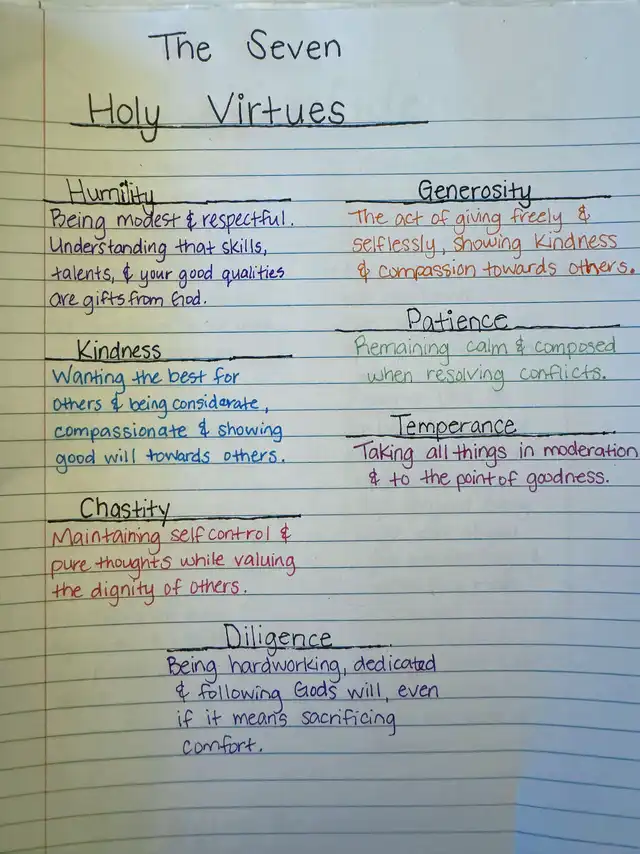 The Seven
Holy Virtues
Humility
Being modest & respectful.
Understanding that skills,
talents, & your good qualities
are gifts from God.
Kindness
Wanting the best for
others & being considerate,
compassionate & showing
good will towards others.
Chastity
Maintaining self control &
pure thoughts while valuing
the dignity of others.
Generosity
The act of giving freely &
selflessly, showing kindness
& compassion towards others.
Patience
Remaining calm & composed
when resolving conflicts.
Temperance
Taking all things in moderation
& to the point of goodness.
Diligence
Being hardworking, dedicated
& following Gods will, even
if it means sacrificing
comfort.